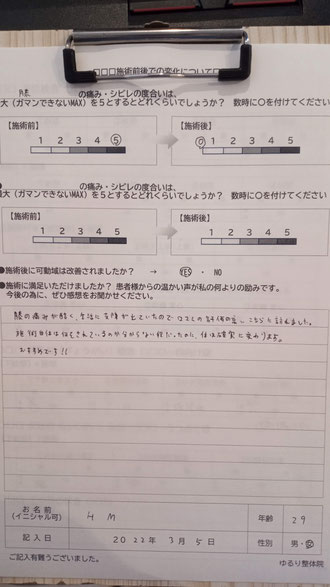 □□□施術前後での変化について□
膝 の痛み・シビレの度合いは、
大(ガマンできないMAX)を5とするとどれくらいでしょうか? 数時に○を付けてください
【施術前】 【施術後】
1 2 3 4 5 0 1 2 3 4 5
●の痛み・シビレの度合いは、
大(ガマンできないMAX)を5とするとどれくらいでしょうか? 数時に○を付けてください
【施術前】 【施術後】
1 2 3 4 5 1 2 3 4 5
●施術後に可動域は改善されましたか? → YES ・ NO
●施術に満足いただけましたか? 患者様からの温かい声が私の何よりの励みです。
今後の為に、ぜひ感想をお聞かせください。
膝の痛みが酷く、生活に支障が出ていたので口コミの評価の高いこちらに訪れました。
施術自体は何をされているのか分からない程だったのに、体は確実に変わります。
おすすめです!!
お名前
(イニシャル可) H M 年齢 29
記入日 2022年 3月 5日 性別 男・女
ご記入有難うございました。 ゆるり整体院